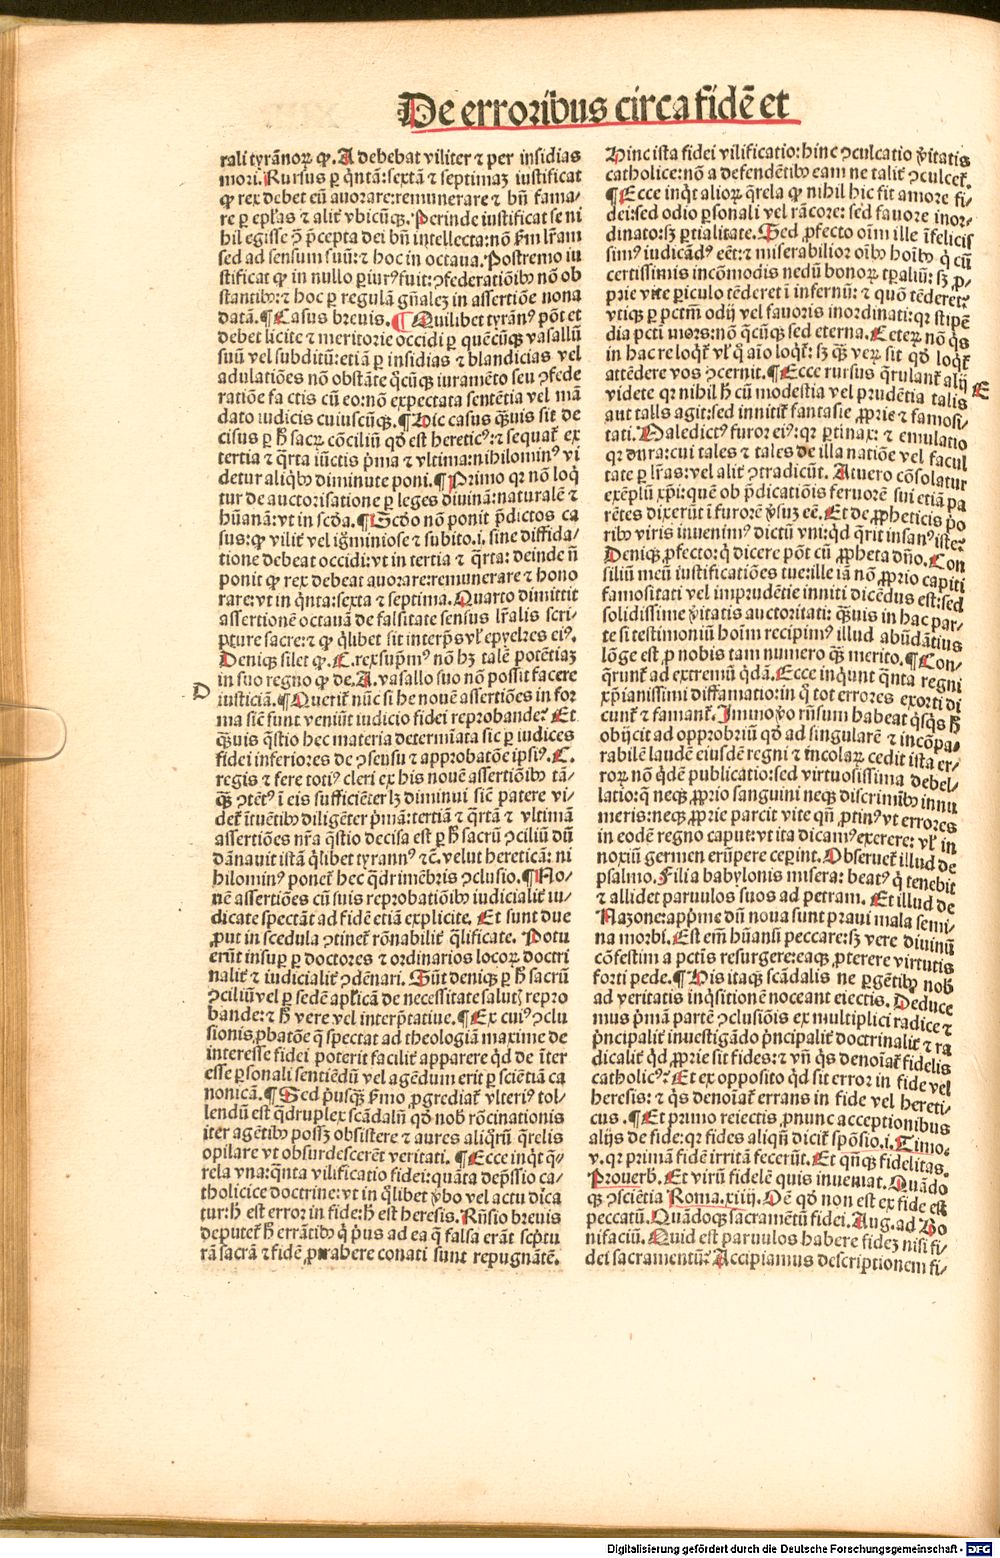 De erroribus circa fidē et
rali tyrānoꝝ ꝙ. A debebat viliter ⁊ per insidias
mori. Rursus ꝑ q̄ntā: sextā ⁊ septimaꝫ iustificat
ꝙ rex debet eū auorare: remunerare ⁊ bn̄ fama-
re ꝑ ep̄las ⁊ alit̄ vbicūqꝫ. Perinde iustificat se ni
hil egisse ꝯ̄ p̄cepta dei bn̄ intellecta: nō ẜm l̄ram
sed ad sensum suū: ⁊ hoc in octaua. Postremo iu
stificat ꝙ in nullo ꝑiurꝰ fuit: ꝯfederatiōibꝫ nō ob
stantibꝫ: ⁊ hoc ꝑ regulā gn̄aleꝫ in assertiōe nona
datā. ¶ Casus breuis. ¶ Quilibet tyrānꝰ pōt et
debet licite ⁊ meritorie occidi ꝑ quēcūqꝫ vasallū
suū vel subditū: etiā ꝑ insidias ⁊ blandicias vel
adulatiōes nō obstāte q̄cūqꝫ iuramēto seu ꝯfede
ratiōe factis cū eo: nō expectata sentētia vel mā
dato iudicis cuiuscūqꝫ. ¶ Hic casus qꝫuis sit de
cisus ꝑ h̄ sacꝝ cōciliū qd̄ est hereticꝰ: ⁊ sequat̄ ex
tertia ⁊ q̄rta iūctis p̄ma ⁊ vltima: nihilominꝰ vi
detur aliqbꝫ diminute poni. ¶ Primo qr nō loq̄
tur de auctorisatione ꝑ leges diuinā: naturalē ⁊
hūanā: vt in scd̄a. ¶ Scd̄o nō ponit p̄dictos ca
sus: ꝙ vilit̄ vel iḡminiose ⁊ subito .i. sine diffida-
tione debeat occidi: vt in tertia ⁊ q̄rta: deinde n̄
ponit ꝙ rex debeat auorare: remunerare ⁊ hono
rare: vt in q̄nta: sexta ⁊ septima. Quarto dimittit
assertionē octauā de falsitate sensus l̄ralis scri-
pture sacre: ⁊ ꝙ q̄libet sit interp̄s vl̄ epyelzes eiꝰ.
Deniqꝫ silet ꝙ. C. rex sup̄mꝰ nō hꝫ talē potētiaꝫ
in suo regno ꝙ de. A. vasallo suo nō possit facere
D
iusticiā. ¶ Querit̄ nūc si he nouē assertiōes in for
ma sic̄ sunt veniūt iudicio fidei reprobande? Et
qꝫuis q̄stio hec materia determīata sic ꝑ iudices
fidei inferiores de ꝯsensu ⁊ approbatōe ipsiꝰ. C.
regis ⁊ fere totiꝰ cleri ex his nouē assertiōibꝫ tā-
qꝫ ꝯtētꝭ ī eis sufficiēter lꝫ diminui sic̄ patere vi-
det̄ ītuētibꝫ diligēter p̄mā: tertiā ⁊ q̄rtā ⁊ vltimā
assertiōes nr̄a q̄stio decisa est ꝑ h̄ sacrū ꝯciliū dū
dānauit istā q̄libet tyrannꝰ ⁊c̄. velut hereticā: ni
hilominꝰ ponet̄ hec q̄drimēbris ꝯclusio. ¶ No-
nē assertiōes cū suis reprobatiōibꝫ iudicialit̄ iu-
dicate spectāt ad fidē etiā explicite. Et sunt due
ꝓut in scedula ꝯtinet̄ rōnabilit̄ q̄lificate. Potu
erūt insuꝑ ꝑ doctores ⁊ ordinarios locoꝝ doctri
nalit̄ ⁊ iudicialit̄ ꝯdēnari. Sūt deniqꝫ ꝑ h̄ sacrū
ꝯciliū vel ꝑ sedē ap̄licā de necessitate salutꝭ repro
bande: ⁊ h̄ vere vel interp̄tatiue. ¶ Ex cuiꝰ ꝯclu
sionis ꝓbatōe q̄ spectat ad theologiā maxime de
interesse fidei poterit facilit̄ apparere qd̄ de īter
esse ꝑsonali sentiēdū vel agēdum erit ꝑ sciētiā ca
nonicā. ¶ Sed pusqꝫ ẜmo ꝓgrediat̄ vlteriꝰ tol-
lendū est q̄druplex scādalū qd̄ nob̄ rōcinationis
iter agētibꝫ possꝫ obsistere ⁊ aures aliqrū q̄relis
opilare vt obsurdescerēt veritati. ¶ Ecce inqt̄ q̄-
rela vna: q̄nta vilificatio fidei: quāta dep̄ssio ca-
tholice doctrine: vt in q̄libet v̄bo vel actu dica
tur: h̄ est error in fide: h̄ est heresis. Rn̄sio breuis
deputet̄ h̄ errātibꝫ q̄ p̄us ad ea q̄ falsa erāt sc̄ptu
rā sacrā ⁊ fidē ꝓtrabere conati sunt repugnātē.
Hinc ista fidei vilificatio: hinc ꝯculcatio v̄itatis
catholice: nō a defendētibꝫ eam ne talit̄ ꝯculcet̄.
¶ Ecce inqt̄ alioꝝ q̄rela ꝙ nihil hic fit amore fi-
dei: sed odio ꝑsonali vel rācore: sed fauore inor-
dinato: sꝫ ꝑtialitate. Sed ꝓfecto oīm ille īfelicis
simꝰ iudicādꝰ eēt: ⁊ miserabilior oībꝫ hoībꝫ q̄ cū
certissimis incōmodis nedū bonoꝝ tꝑaliū: sꝫ ꝓ-
prie vite ꝑiculo tēderet ī infernū: ⁊ quō tēderet?
vtiqꝫ ꝑ pctm̄ odij vel fauoris inordinati: qr stipē
dia pcti mors: nō q̄cūqꝫ sed eterna. Ceteꝝ nō q̄s
in hac re loqt̄ vl̄ q̄ aīo loqt̄: sꝫ qꝫ veꝝ sit qd̄ loqt̄
attēdere vos ꝯcernit. ¶ Ecce rursus q̄rulant̄ alij
E
videte qr nihil h̄ cū modestia vel prudētia talis
aut talis agit: sed innitit̄ fantasie ꝓprie ⁊ famosi-
tati. Maledictꝰ furor eiꝰ: qr ꝑtinax: ⁊ emulatio
qr dura: cui tales ⁊ tales de illa natiōe vel facul
tate ꝑ l̄ras: vel alit̄ ꝯtradicūt. At vero cōsolatur
exēplū xp̄i: quē ob p̄dicatiōis feruorē sui etiā pa
rētes dixerūt ī furorē v̄suꝫ eē. Et de ꝓpheticis ꝓo
ribꝫ viris inuenimꝰ dictū vni: qd̄ q̄rit insanꝰ iste?
Deniqꝫ ꝓfecto: q̄ dicere pōt cū ꝓpheta dn̄o. Con
siliū meū iustificatiōes tue: ille iā nō ꝓprio capiti
famositati vel imprudētie inniti dicēdus est: sed
solidissime v̄itatis auctoritati: qꝫuis in hac par-
te si testimoniū hoīm recipimꝰ illud abūdātius
lōge est ꝓ nobis tam numero qꝫ merito. ¶ Con-
q̄runt̄ ad extremū q̄dā. Ecce inqunt q̄nta regni
xp̄ianissimi diffamatio: in q̄ tot errores exorti di
cunt̄ ⁊ famant̄. Immo v̄o rn̄sum habeat q̄sqs h̄
obijcit ad opprobriū qd̄ ad singularē ⁊ incōpa-
rabilē laudē eiusdē regni ⁊ incolaꝝ cedit ista er-
roꝝ nō q̄dē publicatio: sed virtuosissima debel-
latio: q̄ neqꝫ ꝓprio sanguini neqꝫ discrimībꝫ innu
meris: neqꝫ ꝓprie parcit vite qn̄ ꝓtinꝰ vt errores
in eodē regno caput: vt ita dicamꝰ exerere: vl̄ in
noxiū germen erūpere ceperint. Obseruet̄ illud de
psalmo. Filia babylonis misera: beatꝰ q̄ tenebit
⁊ allidet paruulos suos ad petram. Et illud de
Nazone: app̄me dū noua sunt praui mala semi-
na morbi. Est em̄ hūanū peccare: sꝫ vere diuinū
cōfestim a pctīs resurgere: eaqꝫ ꝓterere virtutis
forti pede. ¶ His itaqꝫ scādalis ne ꝑgētibꝫ nob̄
ad veritatis inqsitionē noceant eiectis. Deduce
mus p̄mā partē ꝯclusiōis ex multiplici radice ⁊
p̄ncipalit̄ inuestigādo p̄ncipalit̄ doctrinalit̄ ⁊ ra
dicalit̄ qd̄ ꝓprie sit fides: ⁊ vn̄ q̄s denoīat̄ fidelis
catholicꝰ? Et ex opposito qd̄ sit error in fide vel
heresis: ⁊ q̄s denoīat̄ errans in fide vel hereti-
cus. ¶ Et primo reiectis ꝓnunc acceptionibus
alijs de fide: qr fides aliqn̄ dicit̄ spōsio .i. Timo.
v. qr primā fidē irritā fecerūt. Et qn̄qꝫ fidelitas.
Prouerb. Et virū fidelē quis inueniat. Quādo
qꝫ ꝯsciētia Roma. xiiij. Oē qd̄ non est ex fide est
peccatū. Quādoqꝫ sacramētū fidei. Aug. ad Bo
nifaciū. Quid est paruulos habere fideꝫ nisi fi-
dei sacramentū? Accipiamus descriptionem fi-
Digitalisierung gefördert durch die Deutsche Forschungsgemeinschaft - DFG